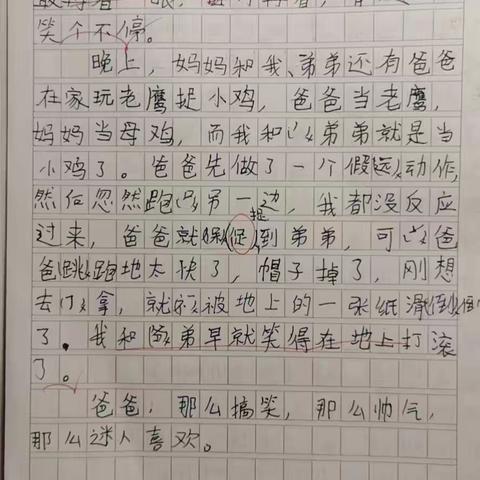 笑个不停。
晚上，妈妈和我、弟弟还有爸爸
在家玩老鹰捉小鸡，爸爸当老鹰，
妈妈当母鸡，而我和弟弟就是当
小鸡了。爸爸先做了一个假动作，
然后忽然跑另一边，我都没反应
捉
过来，爸爸就促到弟弟，可爸
爸跳跑地太快了，帽子掉了，刚想
去拿，就被地上的一张纸滑倒
了。我和弟弟早就笑得在地上打滚
了。
爸爸，那么搞笑，那么帅气，
那么迷人喜欢。